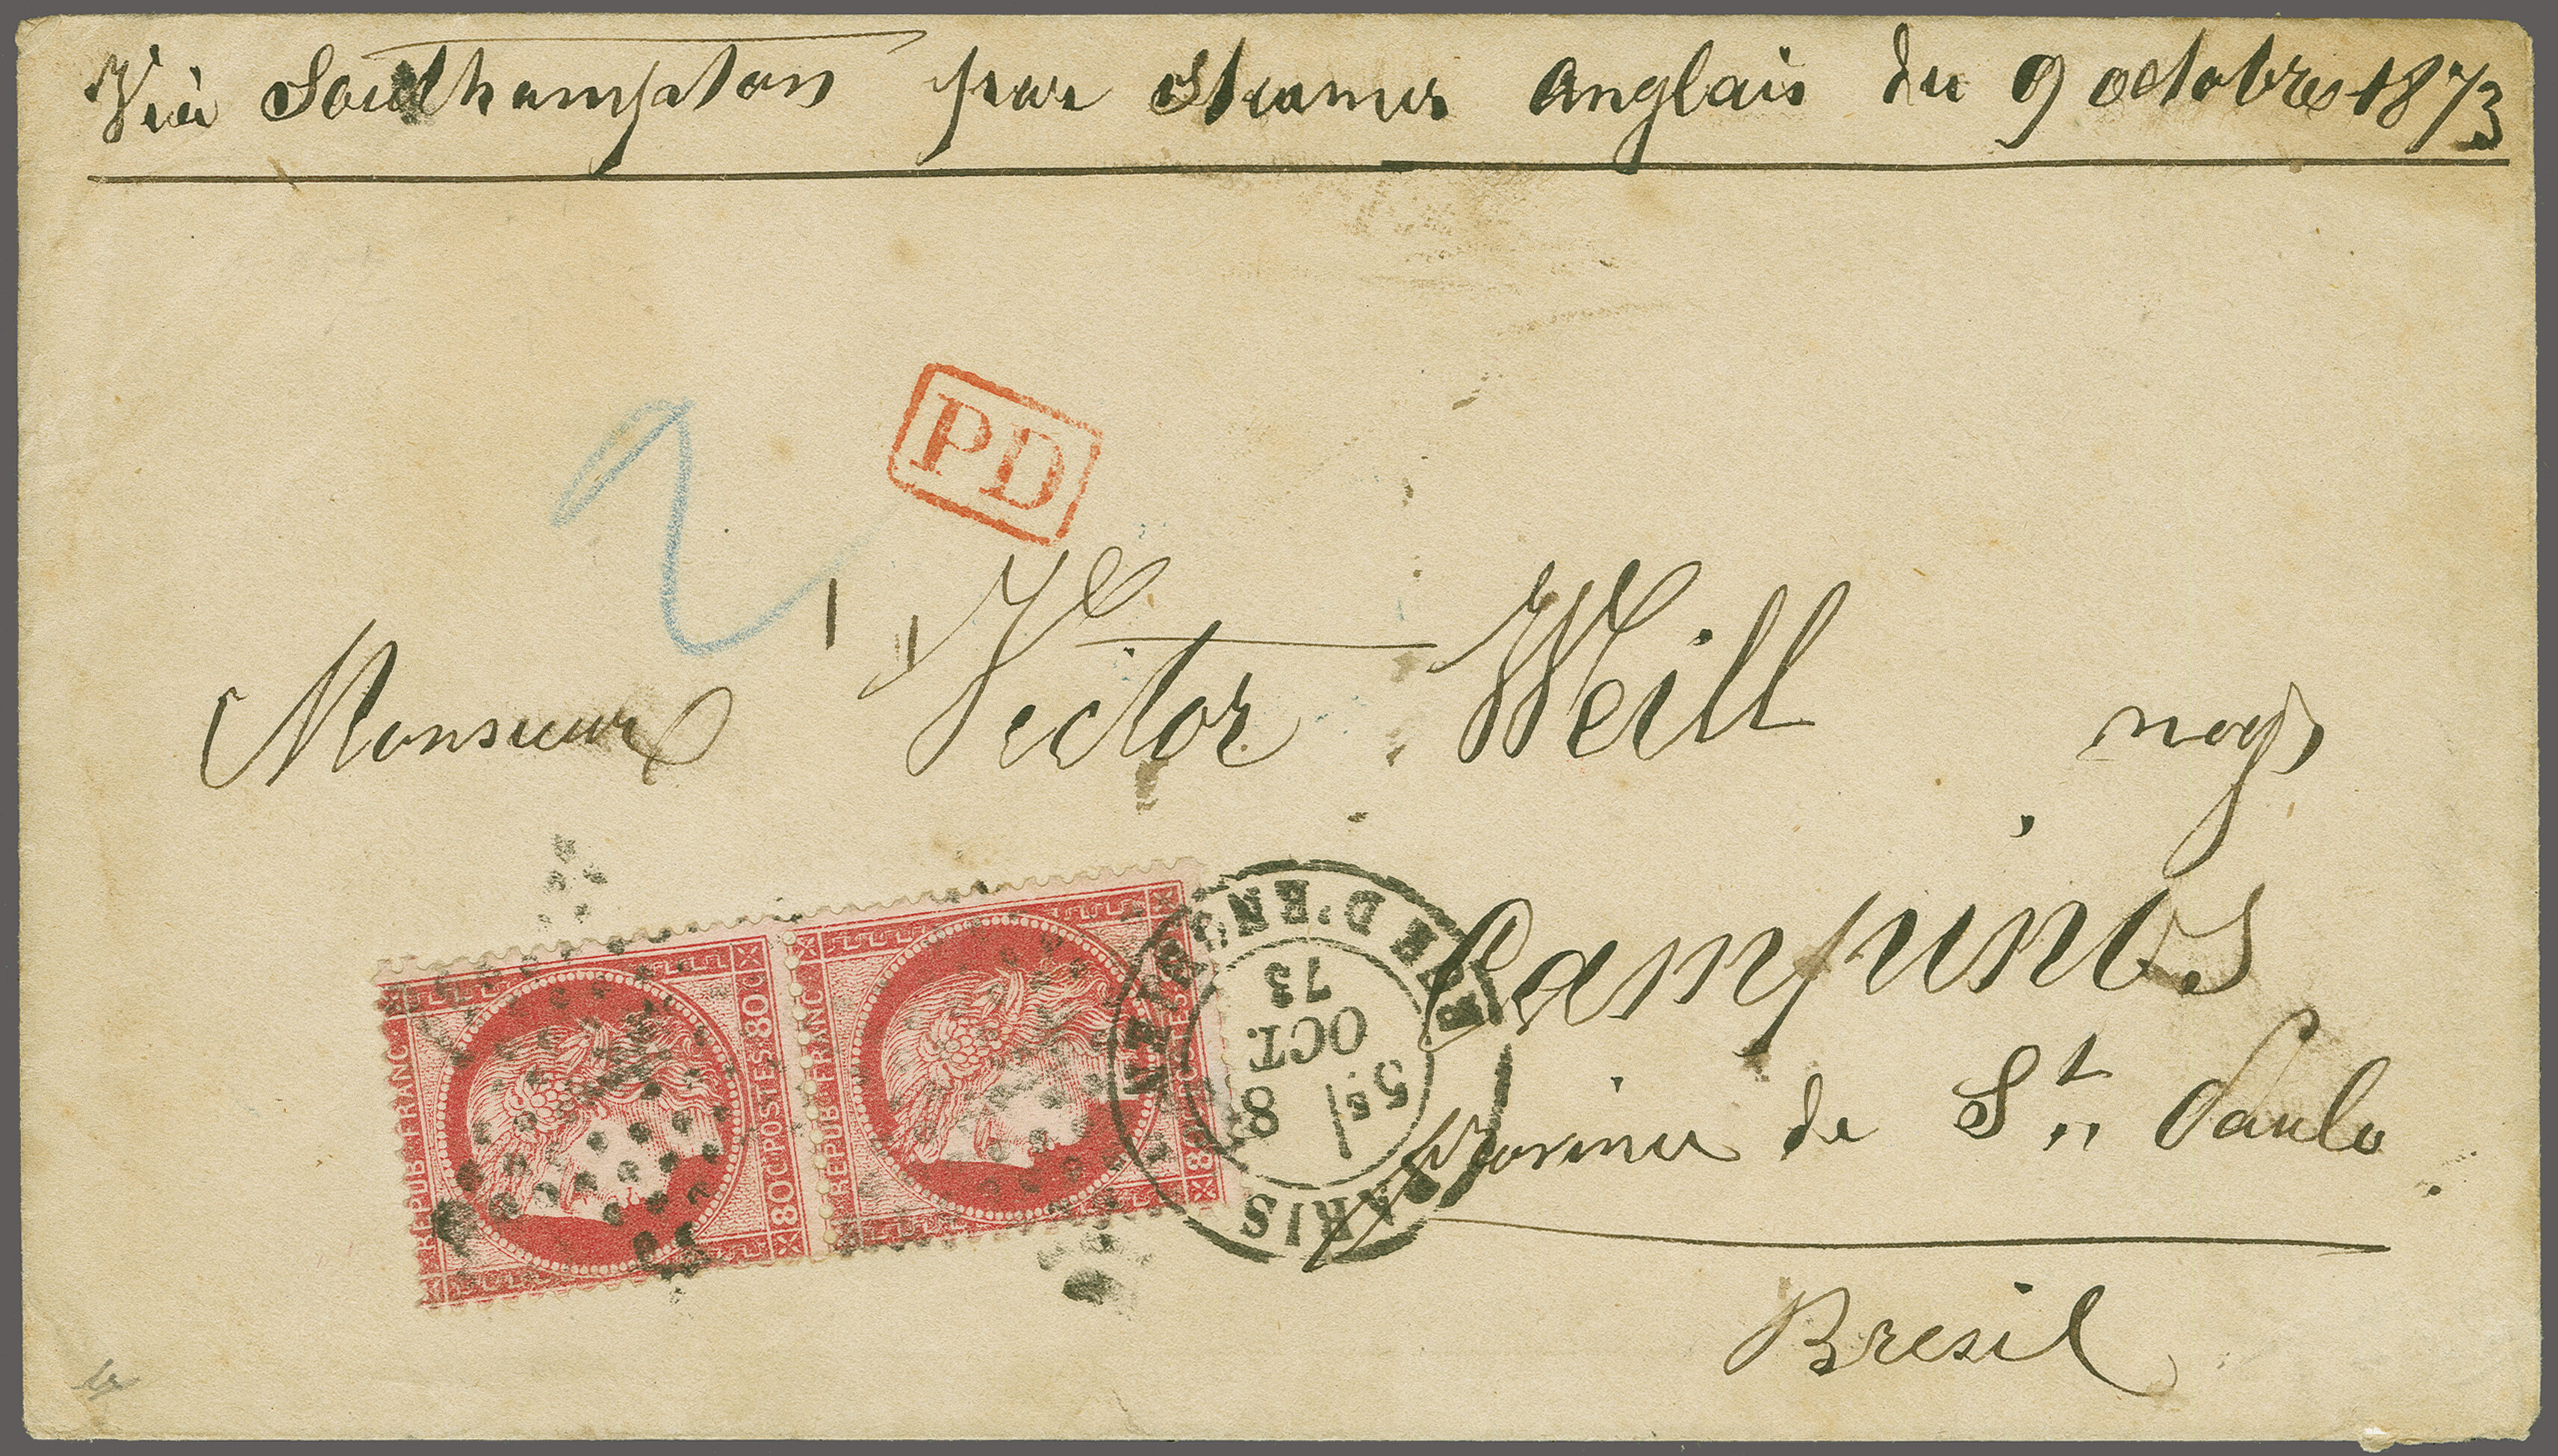 Viâ Southampton par Steamer Anglais du 9 octobre 1873
PD
2
Monsieur Victor Weill negt
Campinos
province de St. Paulo
Bresil
REPUB·FRANC·
80C POSTES 80C
REPUB·FRANC·
PARIS
5E
8
OCT.
73